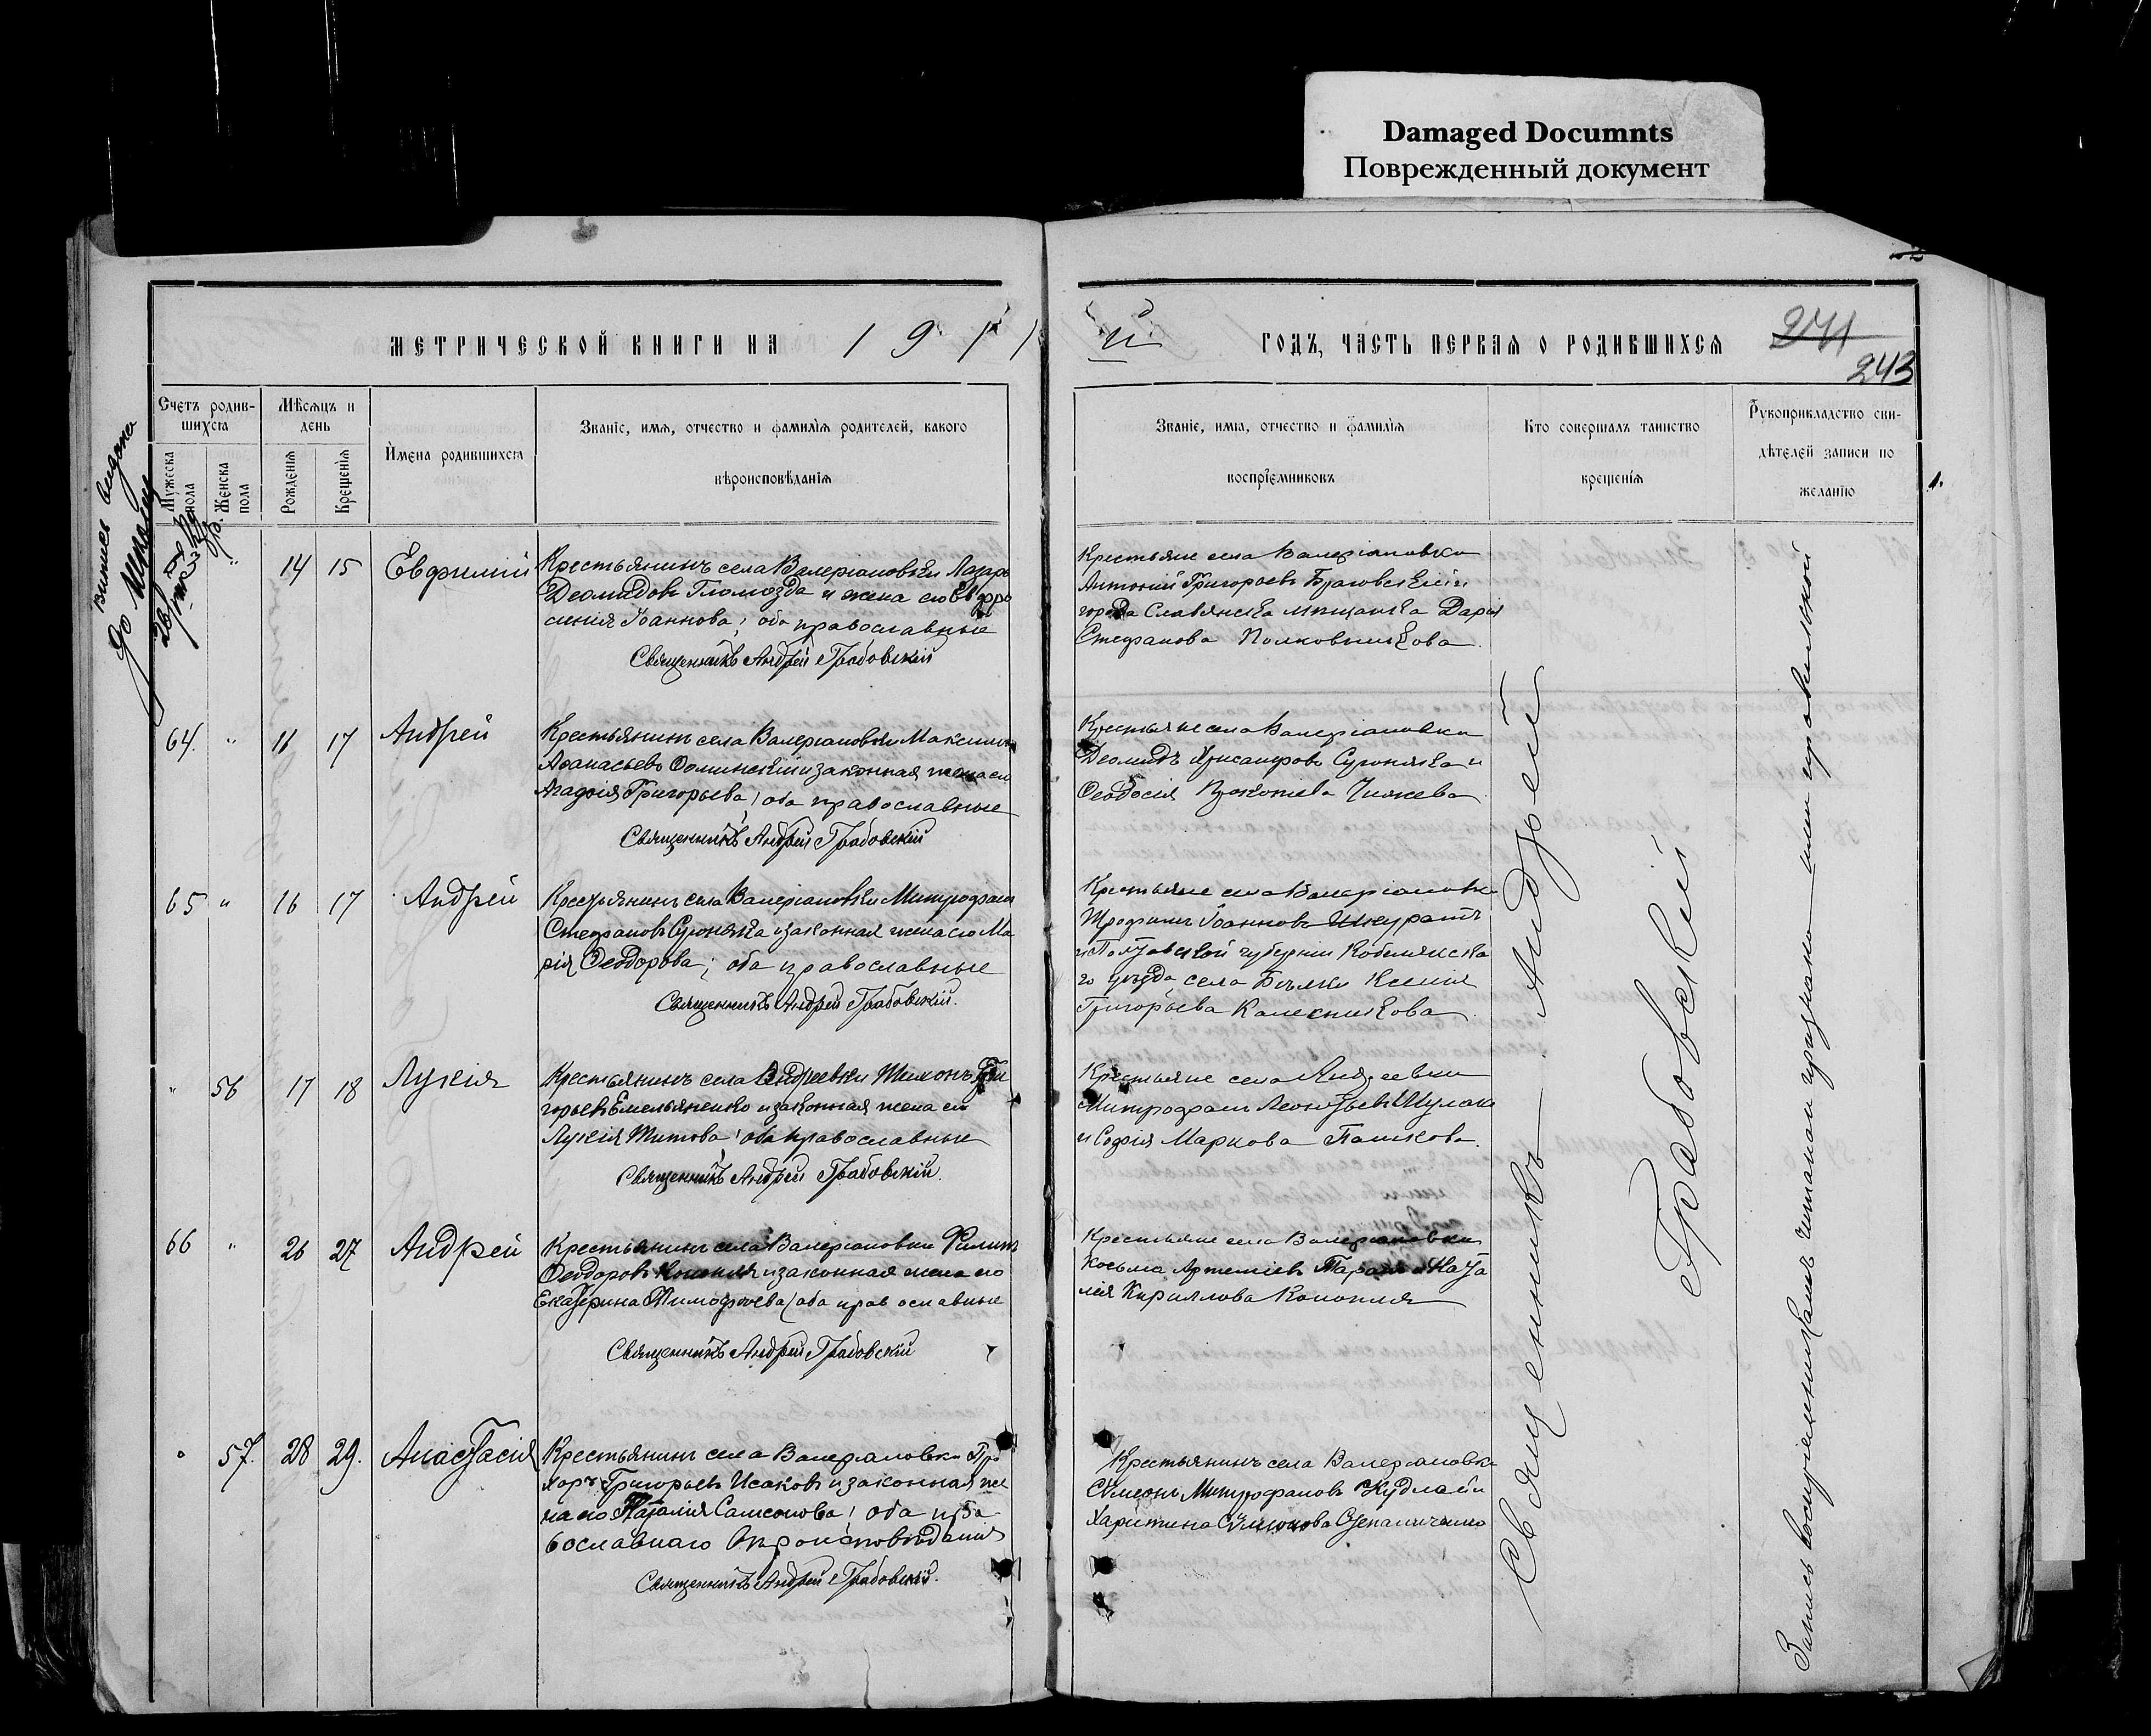 Damaged Documnts
Поврежденный документ
МЕТРИЧЕСКОЙ КНИГИ НА 1911
й ГОДЪ, ЧАСТЬ ПЕРВАЯ О РОДИВШИХСЯ
241
243
Счетъ родив-
шихся
Мужеска пола
Женска пола
Мѣсяцъ и
день
Рожденія
Крещенія
Имена родившихся
Званіе, имя, отчество и фамилія родителей, какого
вѣроисповѣданія
Званіе, имя, отчество и фамилія
воспріемниковъ
Кто совершалъ таинство
крещенія
Рукоприкладство сви-
дѣтелей записи по
желанію
" 14 15 Евфимій
Крестьянинъ села Валеріановки Лазарь
Деомидовъ Гломозда и жена его Евфро
синія Іоаннова; оба православные
Священникъ Андрей Грабовскій
Крестьяне села Валеріановки
Антоній Григорьевъ
города Славянска мѣщанка Дарія
Стефанова Полковникова
64. " 16 17 Андрей
Крестьянинъ села Валеріановки Максимъ
Аѳанасьевъ и законная жена его
Агафія Григорьева; оба православные
Священникъ Андрей Грабовскій
Крестьяне села Валеріановки
Деомидъ Хрисанфовъ Сугоняка и
Ѳеодосія Чижева
65 " 16 17 Андрей
Крестьянинъ села Валеріановки Митрофанъ
Стефановъ Сугоняка и законная жена его Ма
рія Ѳеодорова; оба православные
Священникъ Андрей Грабовскій.
Крестьяне села Валеріановки
Трофимъ Іоанновъ Шкуратъ
и Полтавской губерніи Кобелякска
го уѣзда села Бѣлики Ксенія
Григорьева Калесникова
" 56 17 18 Лукія
Крестьянинъ села Андреевки Тимонъ Гри
горьевъ Емельяненко и законная жена его
Лукія Титова; оба православные
Священникъ Андрей Грабовскій.
Крестьяне села Андреевки
Митрофанъ Леонтьевъ Шулака
и Софія Маркова Пашкова.
66 " 26 27 Андрей
Крестьянинъ села Валеріановки Филипъ
Ѳеодоровъ Конопля и законная жена его
Екатерина Тимофѣева; оба православные
Священникъ Андрей Грабовскій
Крестьяне села Валеріановки
Косьма Артеміевъ Таранъ и Ната
лія Кириллова Конопля
" 57. 28 29. Анастасія
Крестьянинъ села Валеріановки Про
хоръ Григорьевъ Исаковъ и законная же
на его Наталія Самсонова; оба пра
вославнаго вѣроисповѣданія
Священникъ Андрей Грабовскій.
Крестьянинъ села Валеріановки
Сѵмеонъ Митрофановъ Кудлай и
Харитина Сѵмеонова
Священникъ Андрей
Грабовскій
Запись воспріемникамъ читанъ и признана ими правильной